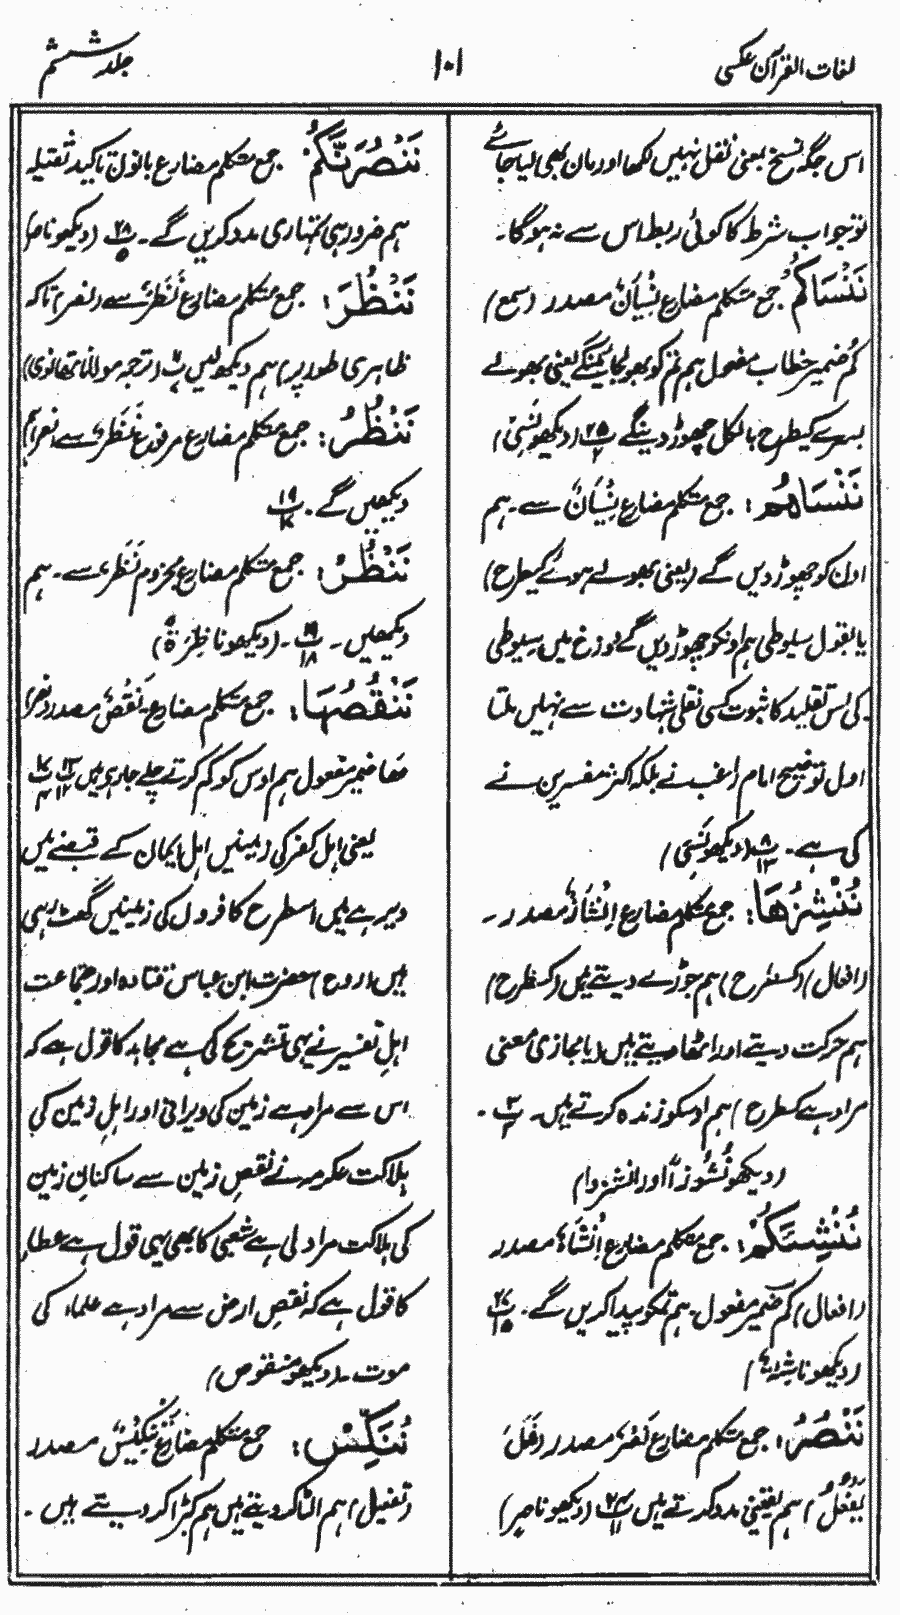 لغات القرآن عکسی
۱۰۱
جلد ششم
اس جگہ نسخ بمعنی نقل نہیں لکھا اور مان بھی لیا جائے
تو جواب شرط کا کوئی ربط اس سے نہ ہوگا۔
نَنْسَاكُمْ جمع متکلم مضارع نِسْیَانٌ مصدر (سمع)
کُم ضمیر خطاب مفعول ہم تم کو بھولجائینگے یعنی بھولے
بسرے کیطرح بالکل چھوڑ دینگے ۲۵ (دیکھو نَسِیَ)
نَنْسَاهُمْ: جمع متکلم مضارع نِسْیَانٌ سے۔ ہم
اون کو چھوڑ دیں گے (یعنی بھولے ہوئے کیطرح)
یا بقول سیوطی ہم اونکو چھوڑ دیں گے دوزخ میں۔ سیوطی
کی اس تقلید کا ثبوت کسی نقلی شہادت سے نہیں ملتا
اول توضیح امام راغب نے بلکہ اکثر مفسرین نے
کی ہے۔ ۸ ۱۳ (دیکھو نَسِیَ)
نُنْشِزُهَا: جمع متکلم مضارع اِنْشَازٌ مصدر۔
(افعال) (کسطرح) ہم جوڑے دیتے ہیں (کسطرح)
ہم حرکت دیتے اور اٹھا دیتے ہیں (یا مجازی معنی
مراد ہے کسطرح) ہم اوسکو زندہ کرتے ہیں۔ ۳
(دیکھو نُشُوزًا اور انشزوا)
نُنْشِئَكُمْ: جمع متکلم مضارع اِنْشَاءٌ مصدر
(افعال) کم ضمیر مفعول۔ ہم تمکو پیدا کریں گے۔ ۲۷ ۱۵
(دیکھو ناشئۃ)
نَنْصُرُ: جمع متکلم مضارع نَصْرٌ مصدر (فَعَلَ
یَفْعُلُ) ہم یقینی مدد کرتے ہیں ۲۴ ۱۱ (دیکھو ناصر)
نَنْصُرَنَّكُمْ جمع متکلم مضارع بانون تاکید ثقیلہ
ہم ضرور ہی تمہاری مدد کریں گے۔ ۲۸ ۵ (دیکھو ناصر)
نَنْظُرَ: جمع متکلم مضارع نَظَرٌ سے (نصر) تاکہ
ظاہری طور پر) ہم دیکھ لیں (ترجمہ مولانا تھانوی)
نَنْظُرُ: جمع متکلم مضارع مرفوع نَظَرٌ سے (نصر) ہم
دیکھیں گے۔ ۱۹ ۱۷
نَنْظُرْ: جمع متکلم مضارع مجزوم نَظَرٌ سے۔ ہم
دیکھیں۔ ۱۹ ۱۸ ۔ (دیکھو ناظِرَةٌ)
نَنْقُصُهَا: جمع متکلم مضارع نَقْصٌ مصدر (نصر)
ھا ضمیر مفعول ہم اوس کو کم کرتے چلے جا رہے ہیں ۱۳ ۱۲ ۱۷ ۴
یعنی اہل کفر کی زمینیں اہل ایمان کے قبضے میں
دیر ہے ہیں اسطرح کافروں کی زمینیں گھٹ رہی
ہیں (روح) حضرت ابن عباس قتادہ اور جماعت
اہلِ تفسیر نے یہی تشریح کی ہے مجاہد کا قول ہے کہ
اس سے مراد ہے زمین کی ویرانی اور اہلِ زمین کی
ہلاکت عکرمہ نے نقصِ زمین سے ساکنانِ زمین
کی ہلاکت مراد لی ہے شعبی کا بھی یہی قول ہے عطار
کا قول ہے کہ نقصِ ارض سے مراد ہے علماء کی
موت۔ (دیکھو منقوص)
نُنَكِّسْ: جمع متکلم مضارع تَنْکِیْسٌ مصدر
(تفعیل) ہم الٹا کر دیتے ہیں ہم کبڑا کر دیتے ہیں۔